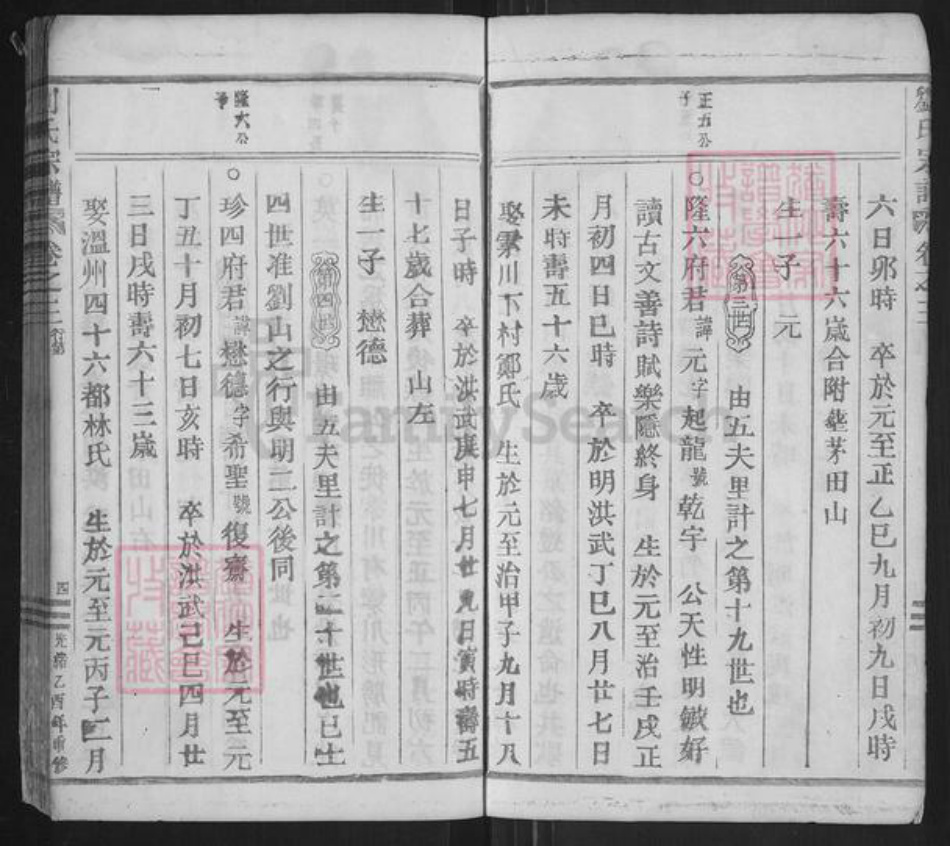 劉氏宗譜 卷之三
六日卯時 卒於元至正乙巳九月初九日戌時
壽六十六歲合附塟茅田山
生一子 元
第三世 由五夫里計之第十九世也
正五公子
○隆六府君諱元字起龍號乾宇 公天性明敏好
讀古文善詩賦樂隱終身 生於元至治壬戌正
月初四日巳時 卒於明洪武丁巳八月廿七日
未時壽五十六歲
娶霥川下村鄭氏 生於元至治甲子九月十八
日子時 卒於洪武庚申七月廿九日寅時壽五
十七歲合葬 山左
生一子 懋德
第四世 由五夫里計之第二十世也已生
四世准劉山之行與明二公後同
隆六公子
○珍四府君諱懋德字希聖號復齋 生於元至元
丁丑十月初七日亥時 卒於洪武己巳四月廿
三日戌時壽六十三歲
娶溫州四十六都林氏 生於元至元丙子二月
劉氏宗譜 卷之三
四
光緒乙酉年重修
FamilySearch